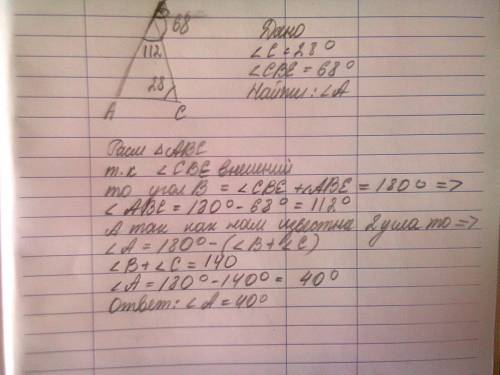 68
112
28
A
C
Дано
∠C = 28°
∠CBE = 68°
Найти: ∠A
Расм △ABC
т.к ∠CBE внешний
то угол B = ∠CBE + ∠ABE = 180° =>
∠ABC = 180° - 68° = 112°
А так как нам известна 2 угла то =>
∠A = 180° - (∠B + ∠C)
∠B + ∠C = 140
∠A = 180° - 140° = 40°
Ответ: ∠A = 40°